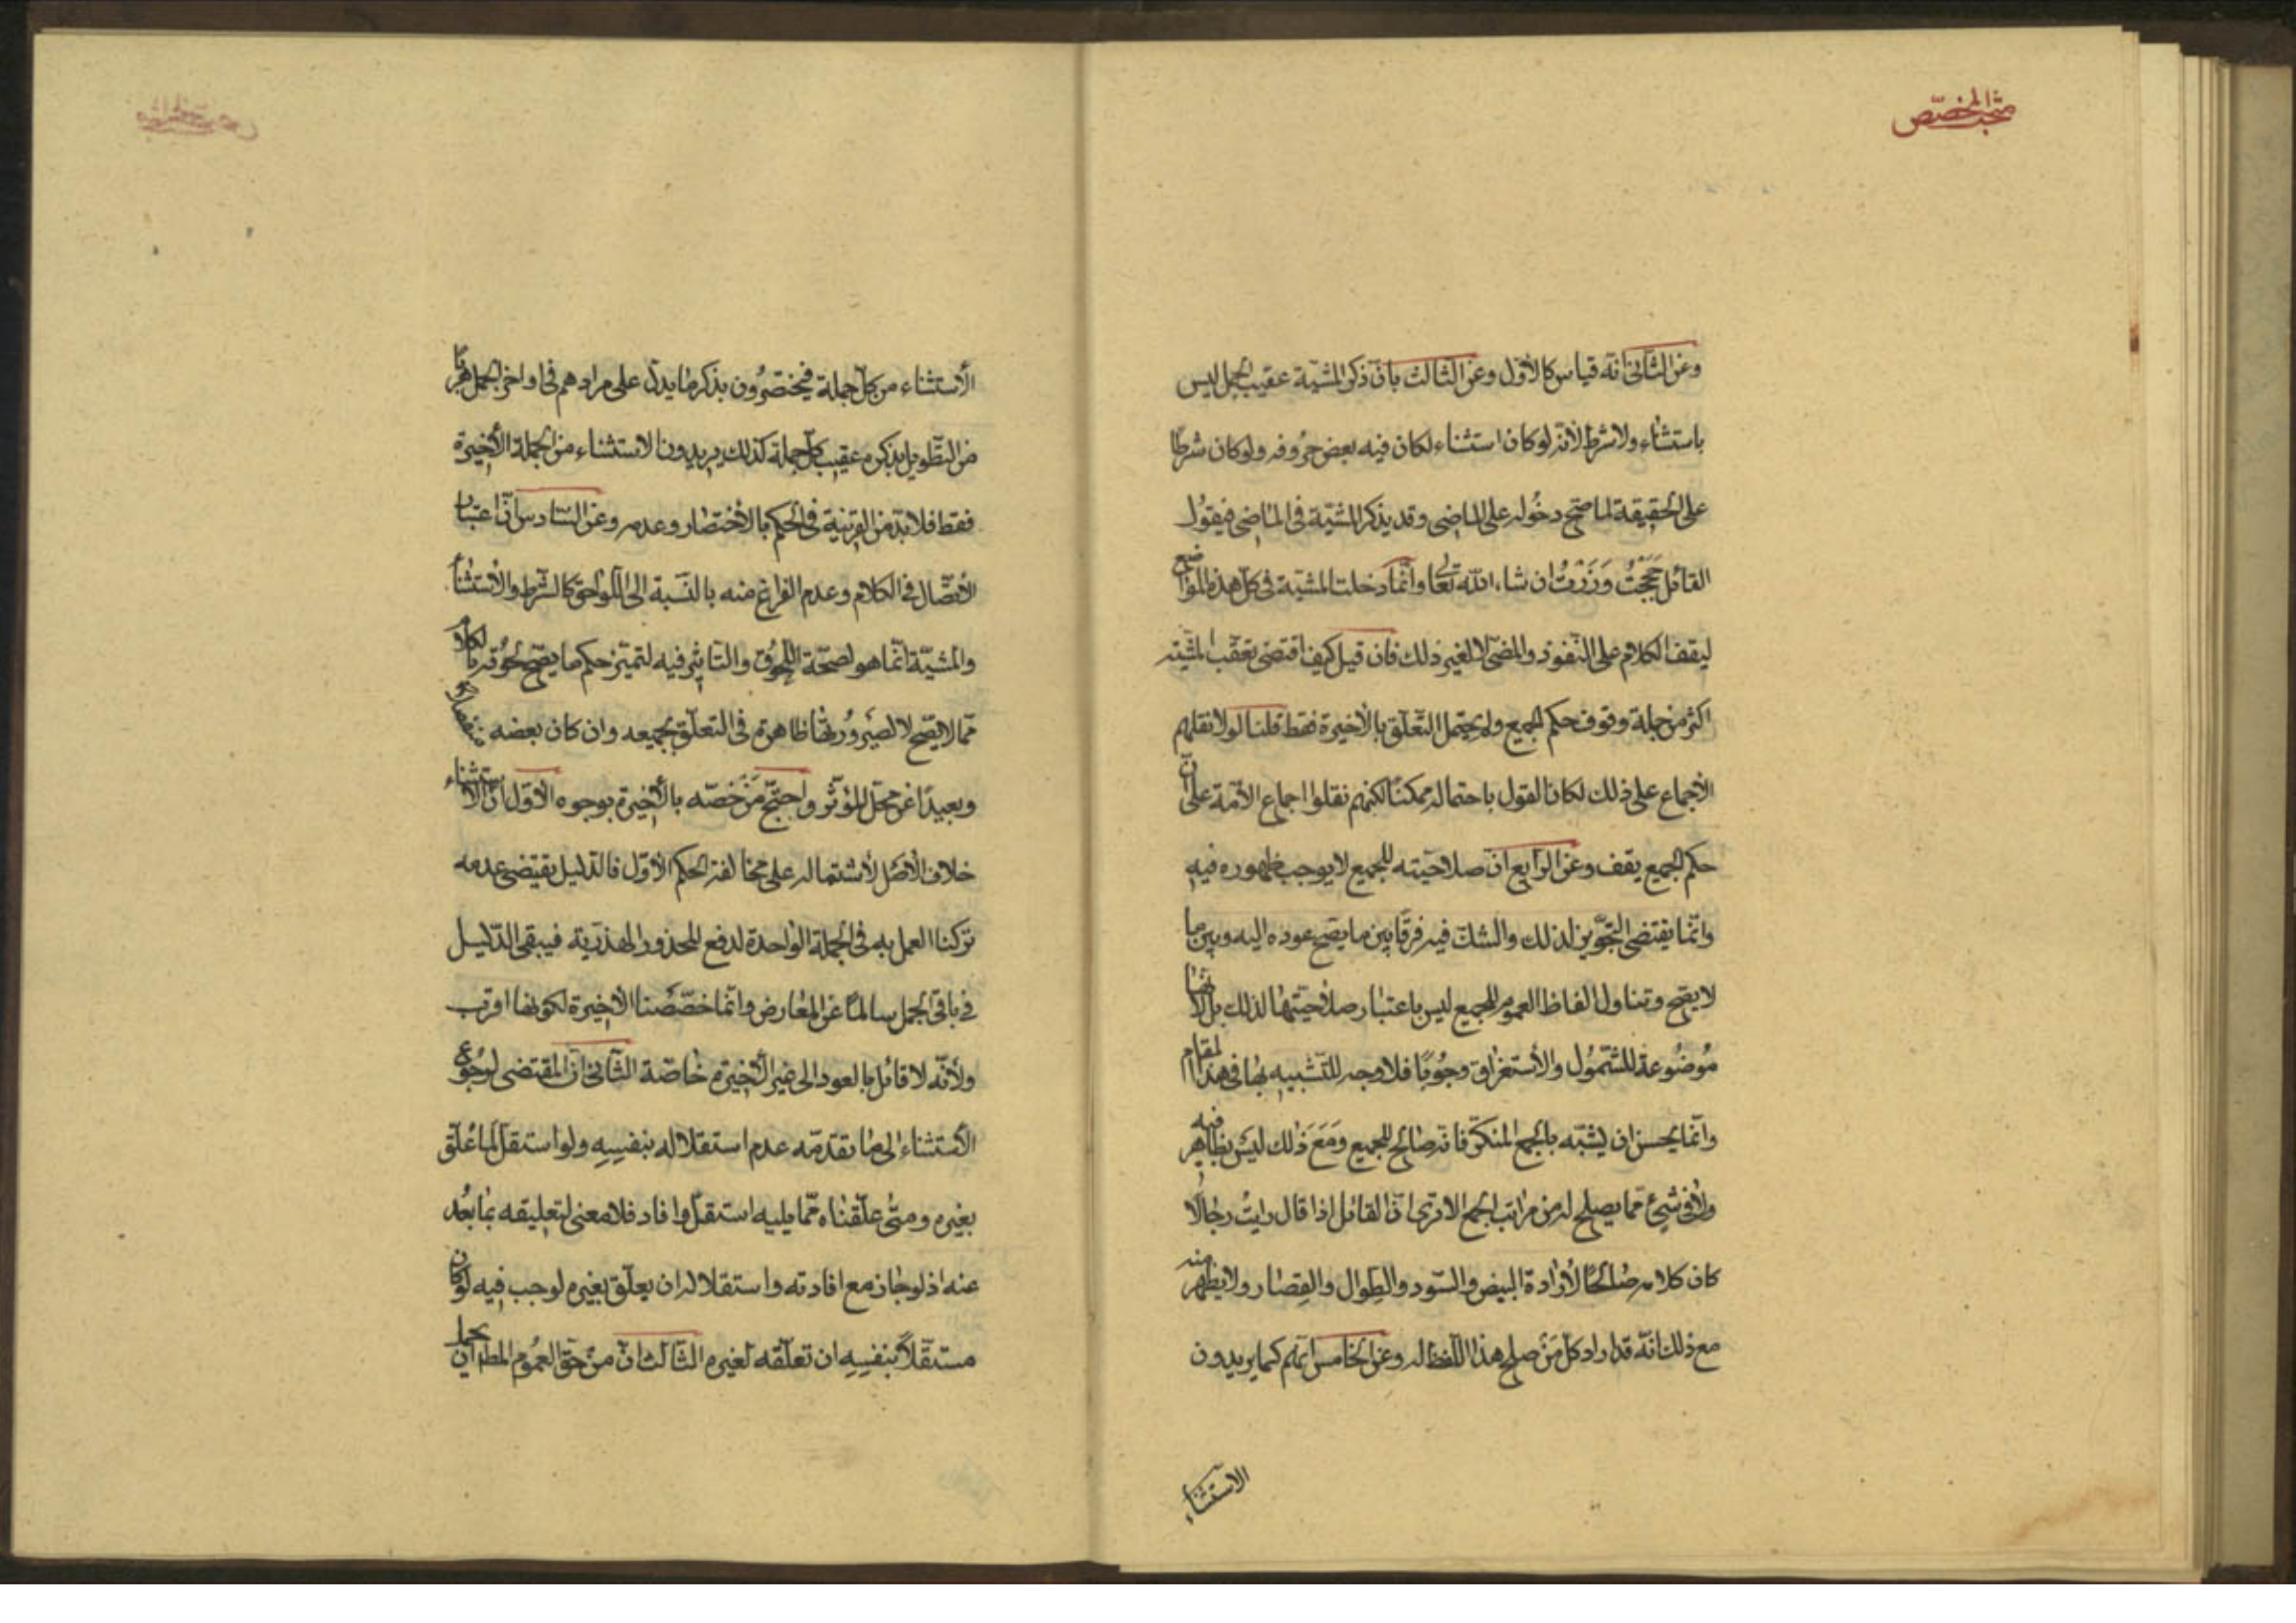 مبحث المخصّص
وعن الثّانى انّه قياس كالأوّل وعن الثّالث بانّ ذكر المشيّة عقيب الجمل ليس
باستثناء ولا شرط لأنّه لو كان استثناء لكان فيه بعض حُروفه ولو كان شرطًا
على الحقيقة لما صحّ دخُوله على الماضى وقد يذكر المشيّة فى الماضى فيقُول
القائل حَجَجْتُ وَزُرْتُ ان شاء الله تعالى وانّما دخلت المشيّة فى كلّ هذه المواضع
ليقف الكلام على النّفوذ والمضىّ لا لغير ذلك فان قيل كيف اقتضى تعقّب المشيّته
اكثر من جملة وقوف حكم الجميع ولم يحتمل التّعلّق بالأخيرة فقط قلنا لولا نقلهم
الأجماع على ذلك لكان القول باحتماله ممكنًا لكنهم نقلوا اجماع الأمّة على انّ
حكم الجميع يقف وعن الرّابع انّ صلاحيّته للجميع لا يوجب ظهوره فيه
وانّما يقتضى التّجويز لذلك والشكّ فيه فرقًا بين ما يصحّ عوده اليه وبين ما
لا يصحّ وتناول الفاظ العموم للجميع ليس باعتبار صلاحيّتها لذلك بل لأنّها
مُوضُوعة للشّمُول والأستغراق وجُوبًا فلا وجه للتّشبيه بها فى هذا المقام
وانّما يحسن ان يُشبّه بالجمع المنكّر فانّه صالح للجميع وَمَعَ ذٰلك ليسَ بظاهر فيه
ولا فى شىءٍ ممّا يصلح له من مراتب الجمع الا ترى انّ القائل اذا قال رايتُ رجالًا
كان كلامه صٰالحًا لأرادة البيض والسّود والطِوال والقِصار ولا يظهر منه
مع ذلك انّه قد اراد كلّ مَن صلح هذا اللّفظ له وعن الخامس انّهم كما يريدون
الاستثناء
الأستثناء من كلّ جملة فيختصرُون بذكر ما يدلّ على مرادهم فى اواخر الجمل هربًا
من التّطويل بذكره عقيب كلّ جملة كذلك يريدون الاستثناء من الجملة الأخيرة
فقط فلا بدّ من القرينة فى الحكم بالأختصار وعدمه وعن السّادس انّ اعتبار
الأتّصال فى الكلام وعدم الفراغ منه بالنّسبة الى اللّواحق كالشّرط والأستثناء
والمشيّة انّما هو لصحّة اللّحوق والتاثير فيه لتميّز حكم ما يصحّ لحُوقه بالكلام
ممّا لا يصحّ لا لصَيْرورتها ظاهرة فى التعلّق بجميعه وان كان بعضه منفصلا
وبعيدًا عن محلّ المؤثّر واحتجّ مَنْ خَصّه بالأخيرة بوجوه الأوّل انّ الأستثناء
خلاف الأصل لأشتماله على مخالفة الحكم الأوّل فالدّليل يقتضى عدمه
تركنا العمل به فى الجملة الواحدة لدفع المحذور الهذريّة فيبقى الدّليل
فى باقى الجمل سالمًا عن المعارض وانّما خصّصنا الأخيرة لكونها اقرب
ولأنّه لا قائل بالعود الى غير الأخيرة خٰاصّة الثّانى انّ المقتضى لرجُوع
الأستثناء الى ما تقدّمه عدم استقلاله بنفسِهِ ولو استقلّ لما عُلّق
بغيره ومتىٰ علّقناه ممّا يليه استقلّ وافاد فلا معنى لتعليقه بما بعُد
عنه اذ لو جاز مع افادته واستقلاله ان يعلّق بغيره لوجب فيه لو كان
مستقلًّا بنفسِهِ ان تعلّقه لغيره الثّالث انّ من حقّ العمُوم المطلق ان يحمل